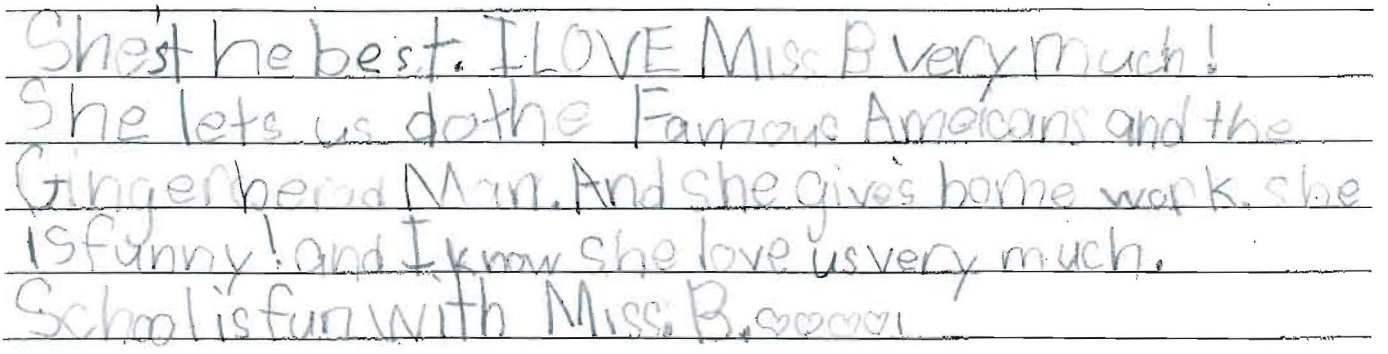 She's the best. I LOVE Miss B very much!
She lets us do the Famous Ameicans and the
Gingerberad Man. And she give's home work. she
is funny! and I know she love us very much.
School is fun with Miss. B. ♡♡♡♡!